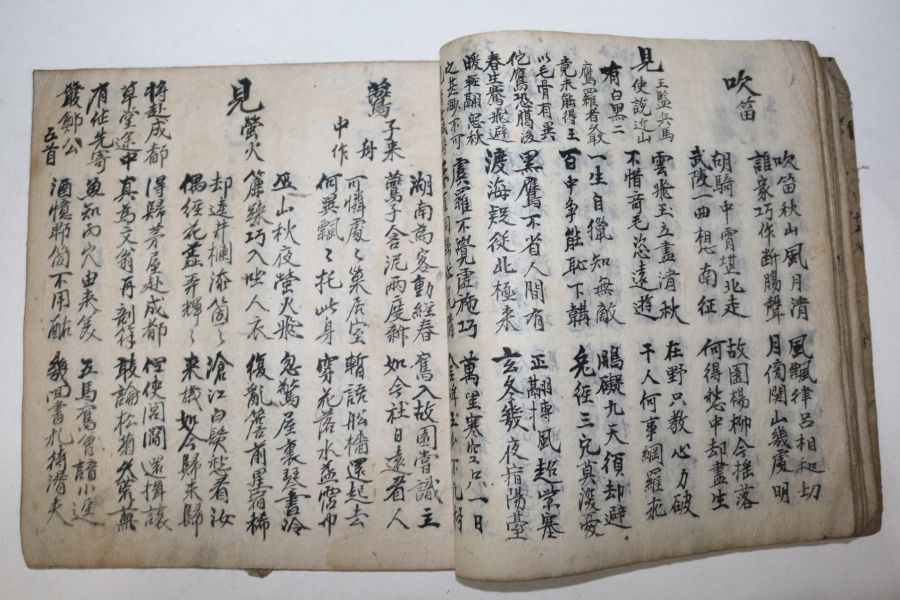 吹笛
吹笛秋山風月清 風飄律呂相和切
誰家巧作斷腸聲 月傍関山幾處明
胡騎中宵堪北走 故園楊柳今搖落
武陵一曲想南征 何得愁中却盡生
見
王監兵馬
使說近山
有白黑二
鷹羅者取
竟未能得王
以毛骨有異
佗鷹恐臘後
春生騫飛避
暖輕翮思秋
之甚眇不可
雲飛玉立盡清秋 在野只教心力破
不惜奇毛恣遠遊 干人何事網羅求
一生自獵知無敵 鵬礙九天須却避
百中爭能恥下韝 兔経三穴莫深憂
黑鷹不省人間有 正翮摶風超紫塞
渡海疑從北極来 玄冬幾夜宿陽臺
虞羅不覺虛施巧 萬里寒空只一日
鷰子来舟
中作
湖南為客動經春 舊入故園嘗識主
鷰子含泥兩度新 如今社日遠看人
可憐處〻巢居室 暫語船檣還起去
何異飄〻托此身 穿花落水益霑巾
見螢火
巫山秋夜螢火飛 忽驚屋裏琴書冷
簾踈巧入坐人衣 復亂簷前星宿稀
却遶井欄添箇〻 滄江白髮愁看汝
偶經花蕊弄輝〻 来歲如今歸未歸
將赴成都
草堂途中
有作先寄
嚴鄭公
五首
得歸茅屋赴成都 但使閭閻還揖讓
真為文翁再剖符 敢論松菊久荒蕪
魚知丙穴由来美 五馬舊曾諳小逕
酒憶郫筒不用酤 幾回書札待潛夫